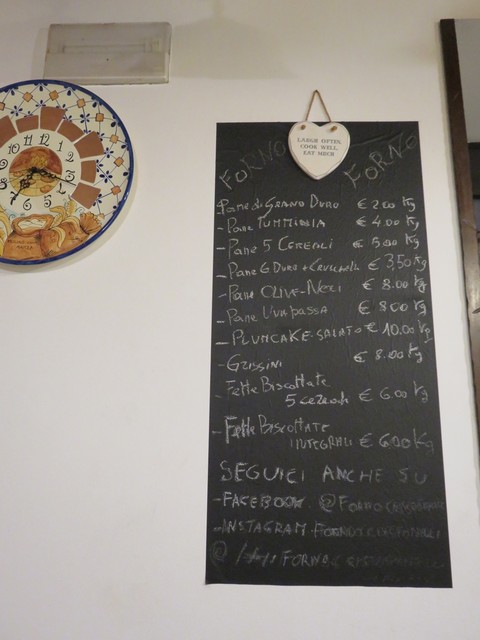 LAUGH OFTEN,
COOK WELL,
EAT MUCH
FORNO FORNO
Pane di GRANO DURO € 2.00 Kg
- Pane TUMMINIA € 4.00 Kg
- Pane 5 CEREALI € 5,00 Kg
- Pane G DURO + € 3,50 Kg
- Pane OLIVE-NOCI € 8.00 Kg
- Pane UVA PASSA € 8,00 Kg
- PLUMCAKE SALATO € 10.00 Kg
- GRISSINI € 8.00 Kg
- Fette Biscottate
5 cereali € 6.00 Kg
- Fette Biscottate
INTEGRALI € 6.00 Kg
SEGUICI ANCHE SU
- FACEBOOK @
- INSTAGRAM
@
10 11 12 1 2 3 4 5 6 7 8